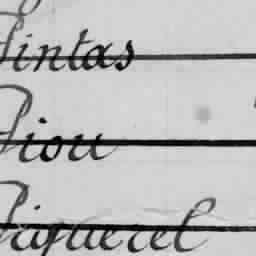 Pintas
Piou
Piquerel